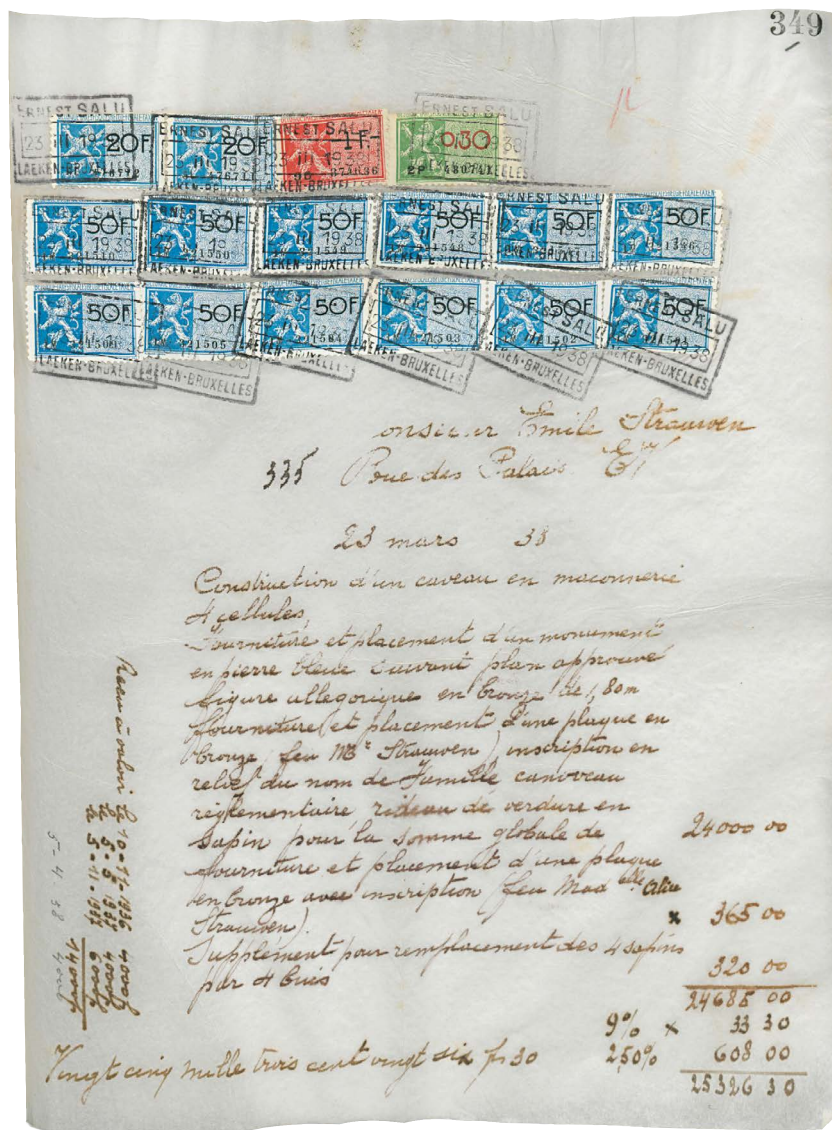 349
ERNEST SALU
23 III 1938
LAEKEN-BRUXELLES
20F. 20F. 1F.- 0,30
50F. 50F. 50F. 50F. 50F. 50F.
50F. 50F. 50F. 50F. 50F. 50F.
onsieur Emile Strauwen
335 Rue des Palais EV
23 mars 38
Construction d'un caveau en maconnerie
4 cellules,
Fourniture et placement d'un monument
en pierre bleue suivant plan approuvé
figure allegorique en bronze de 1,80m
fourniture et placement d'une plaque en
bronze (feu Mr Strauwen), inscription en
relief du nom de Famille, caniveau
réglementaire, rideau de verdure en
sapin pour la somme globale de 24000 00
fourniture et placement d'une plaque
en bronze avec inscription (feu Mad elle
Strauwen). x 365 00
Supplément pour remplacement des 4 sapins
par 4 buis 320 00
24685 00
9% x 33 30
2,50% 608 00
Vingt cinq mille trois cent vingt six frs 30
25326 30
Recu à valoir le 10-12-1936 4000
le 5-5-1937 4000
le 5-11-1937 6000
14000
5-4-38 4000